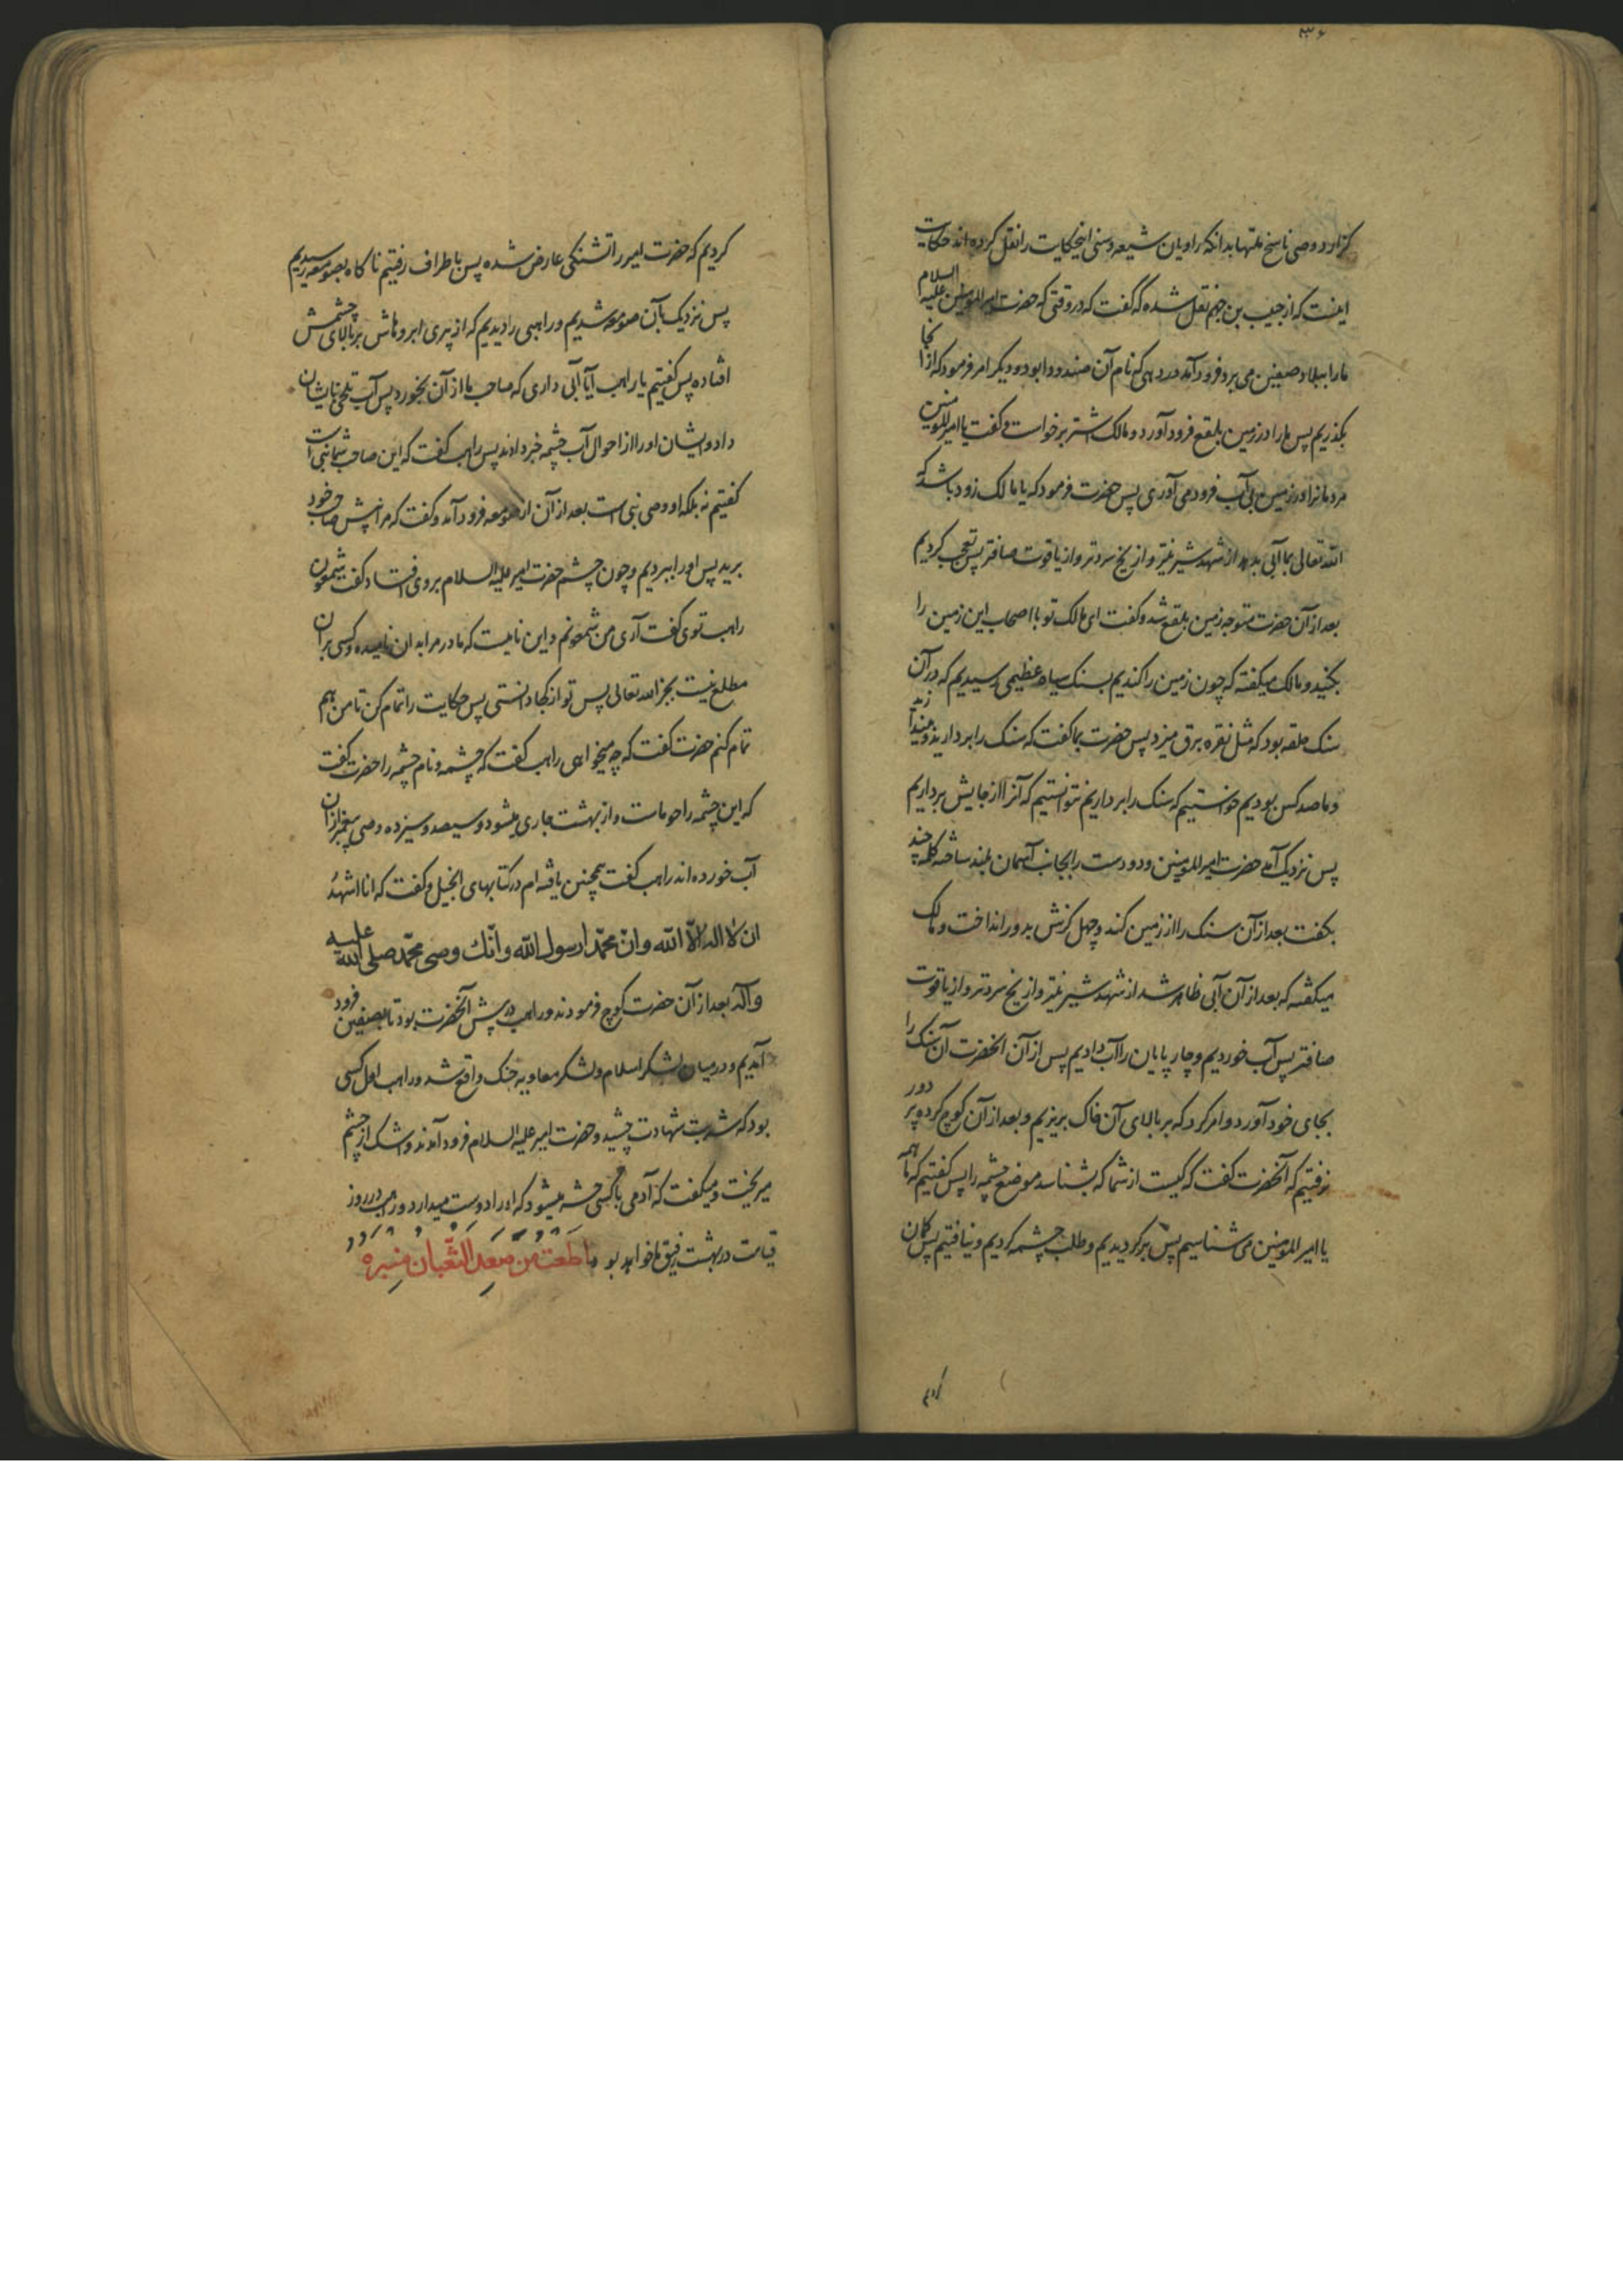 ۳۶
گزارد و وصی ناسخ ملتها بدانکه راویان شیعه و سنی اینحکایت را نقل کرده اند حکایت
اینست که از حبیب بن جهم نقل شده که گفت که در وقتی که حضرت امیرالمومنین علیه السلام
ما را ببلاد صفین می برد فرود آمد در دهی که نام آن صندودا بود و دیگر امر فرمود که از آنجا
بگذریم پس ما را در زمین بلقع فرود آورد و مالک اشتر برخواست و گفت یا امیرالمومنین
مردمانرا در زمین بی آب فرود می آوری پس حضرت فرمود که یا مالک زود باشد که
الله تعالی بما آبی بدهد از شهد شیرینتر و از یخ سردتر و از یاقوت صافتر پس تعجب کردیم
بعد از آن حضرت متوجه زمین بلقع شد و گفت ای مالک تو با اصحاب این زمین را
بکنید و مالک میگفته که چون زمین را کندیم بسنک سیاه عظیمی رسیدیم که در آن
سنک حلقه بود که مثل نقره برق میزد پس حضرت بما گفت که سنک را بردارید و بیندازید
و ما صد کس بودیم خواستیم که سنک را برداریم نتوانستیم که آنرا از جایش برداریم
پس نزدیک آمد حضرت امیرالمومنین و دو دست را بجانب آسمان بلند ساخته کلمه چند
بگفت بعد از آن سنک را از زمین کند و چهل گزش بدور انداخت و مالک
میگفته که بعد از آن آبی ظاهر شد از شهد شیرینتر و از یخ سردتر و از یاقوت
صافتر پس آب خوردیم و چارپایان را آب دادیم پس از آن آنحضرت آن سنک را
بجای خود آورد و امر کرد که بر بالای آن خاک بریزیم و بعد از آن کوچ کرده پر دور
نرفتیم که آنحضرت گفت که کیست از شما که بشناسد موضع چشمه را پس گفتیم که ما همه
یا امیرالمومنین می شناسیم پس برگردیدیم و طلب چشمه کردیم و نیافتیم پس گمان
کردیم که حضرت امیر را تشنگی عارض شده پس باطراف رفتیم ناگاه بصومعه رسیدیم
پس نزدیک بآن صومعه شدیم و راهبی را دیدیم که از پیری ابروهاش بر بالای چشمش
افتاده پس گفتیم یا راهب آیا آبی داری که صاحب ما از آن بخورد پس آب تلخی بایشان
داد و ایشان او را از احوال آب چشمه خبر دادند پس راهب گفت که این صاحب شما نبی است
گفتیم نه بلکه او وصی نبی است بعد از آن از صومعه فرود آمد و گفت که مرا پیش صاحب خود
برید پس او را ببردیم و چون چشم حضرت امیر علیه السلام بروی افتاد گفت شمعون
راهب توی گفت آری من شمعونم و این نامیست که مادر مرا بدان نامیده و کسی بر آن
مطلع نیست بجز الله تعالی پس تو از کجا دانستی پس حکایت را تمام کن تا من هم
تمام کنم حضرت گفت که چه میخواهی راهب گفت که چشمه و نام چشمه را حضرت گفت
که این چشمه راحوماست و از بهشت جاری میشود و سیصد و سیزده وصی پیغمبر از آن
آب خورده اند راهب گفت همچنین یافته ام در کتابهای انجیل و گفت که انا اشهد
ان لا اله الا الله وان محمدا رسول الله وانك وصی محمد صلی الله علیه
و آله بعد از آن حضرت کوچ فرمودند و راهب در پیش آنحضرت بود تا بصفین فرود
آمدیم و در میان لشکر اسلام و لشکر معاویه جنک واقع شد و راهب اول کسی
بود که شربت شهادت چشید و حضرت امیر علیه السلام فرود آمدند و اشک از چشم
میریخت و میگفت که آدمی با کسی حشر میشود که او را دوست میدارد و راهب در روز
قیامت در بهشت رفیق ما خواهد بود ما طعت من صعد الثعبان منبره